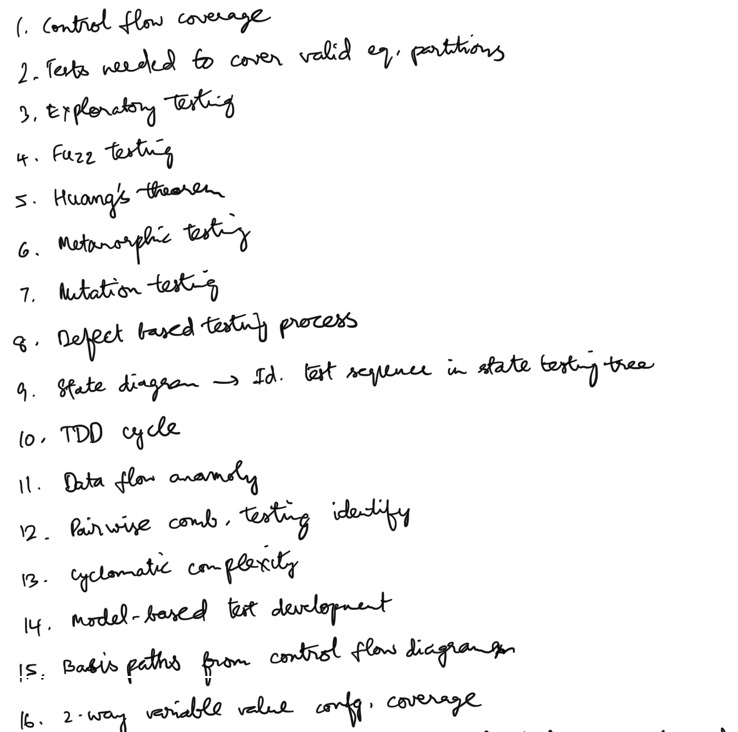 1. Control flow coverage
2. Tests needed to cover valid eq. partitions
3. Exploratory testing
4. Fuzz testing
5. Huang's theorem
6. Metamorphic testing
7. Mutation testing
8. Defect based testing process
9. State diagram → Id. test sequence in state testing tree
10. TDD cycle
11. Data flow anamoly
12. Pairwise comb. testing identify
13. Cyclomatic complexity
14. Model-based test development
15. Basis paths from control flow diagram
16. 2-way variable value config. coverage